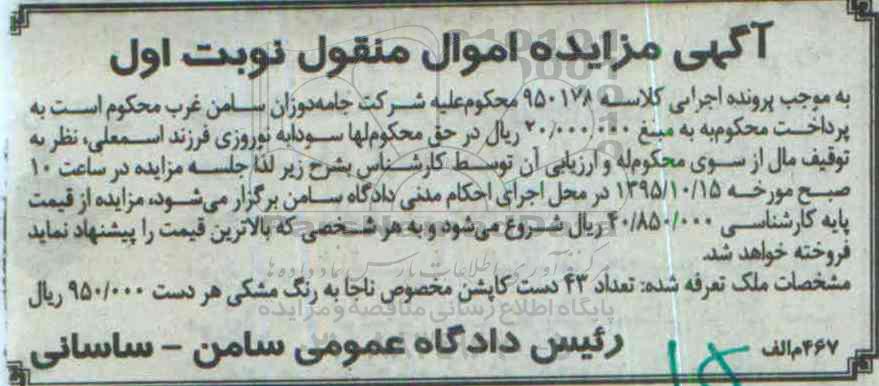 آگهی مزایده اموال منقول نوبت اول
به موجب پرونده اجرایی کلاسه ۹۵۰۱۷۸ محکوم‌علیه شرکت جامه‌دوزان سامن غرب محکوم است به
پرداخت محکوم‌به به مبلغ ۲۰/۰۰۰/۰۰۰ ریال در حق محکوم‌لها سودابه نوروزی فرزند اسمعلی، نظر به
توقیف مال از سوی محکوم‌له و ارزیابی آن توسط کارشناس بشرح زیر لذا جلسه مزایده در ساعت ۱۰
صبح مورخه ۱۳۹۵/۱۰/۱۵ در محل اجرای احکام مدنی دادگاه سامن برگزار می‌شود، مزایده از قیمت
پایه کارشناسی ۴۰/۸۵۰/۰۰۰ ریال شروع می‌شود و به هر شخصی که بالاترین قیمت را پیشنهاد نماید
فروخته خواهد شد.
مشخصات ملک تعرفه شده: تعداد ۴۳ دست کاپشن مخصوص ناجا به رنگ مشکی هر دست ۹۵۰/۰۰۰ ریال
پایگاه اطلاع رسانی مناقصه و مزایده
۴۶۷م‌الف
رئیس دادگاه عمومی سامن - ساسانی